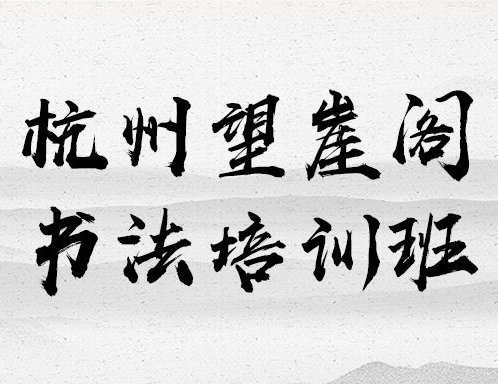 杭州望崖阁
书法培训班